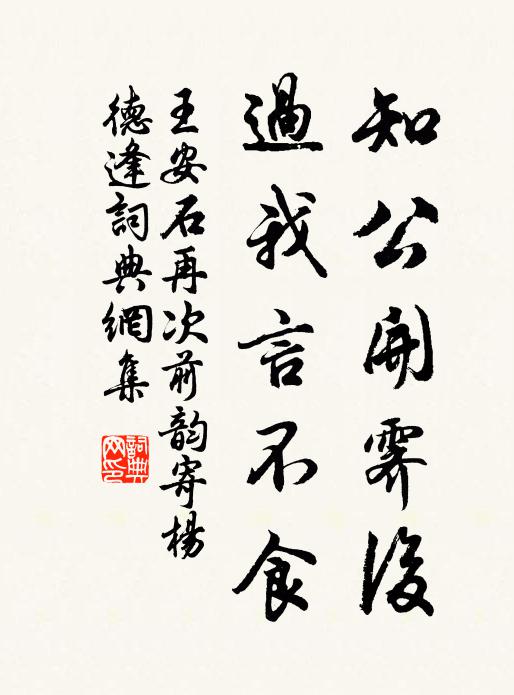 知公開霽後
過我言不食
王安石再次前韵寄楊
德逢詞典網集
詞典
网印